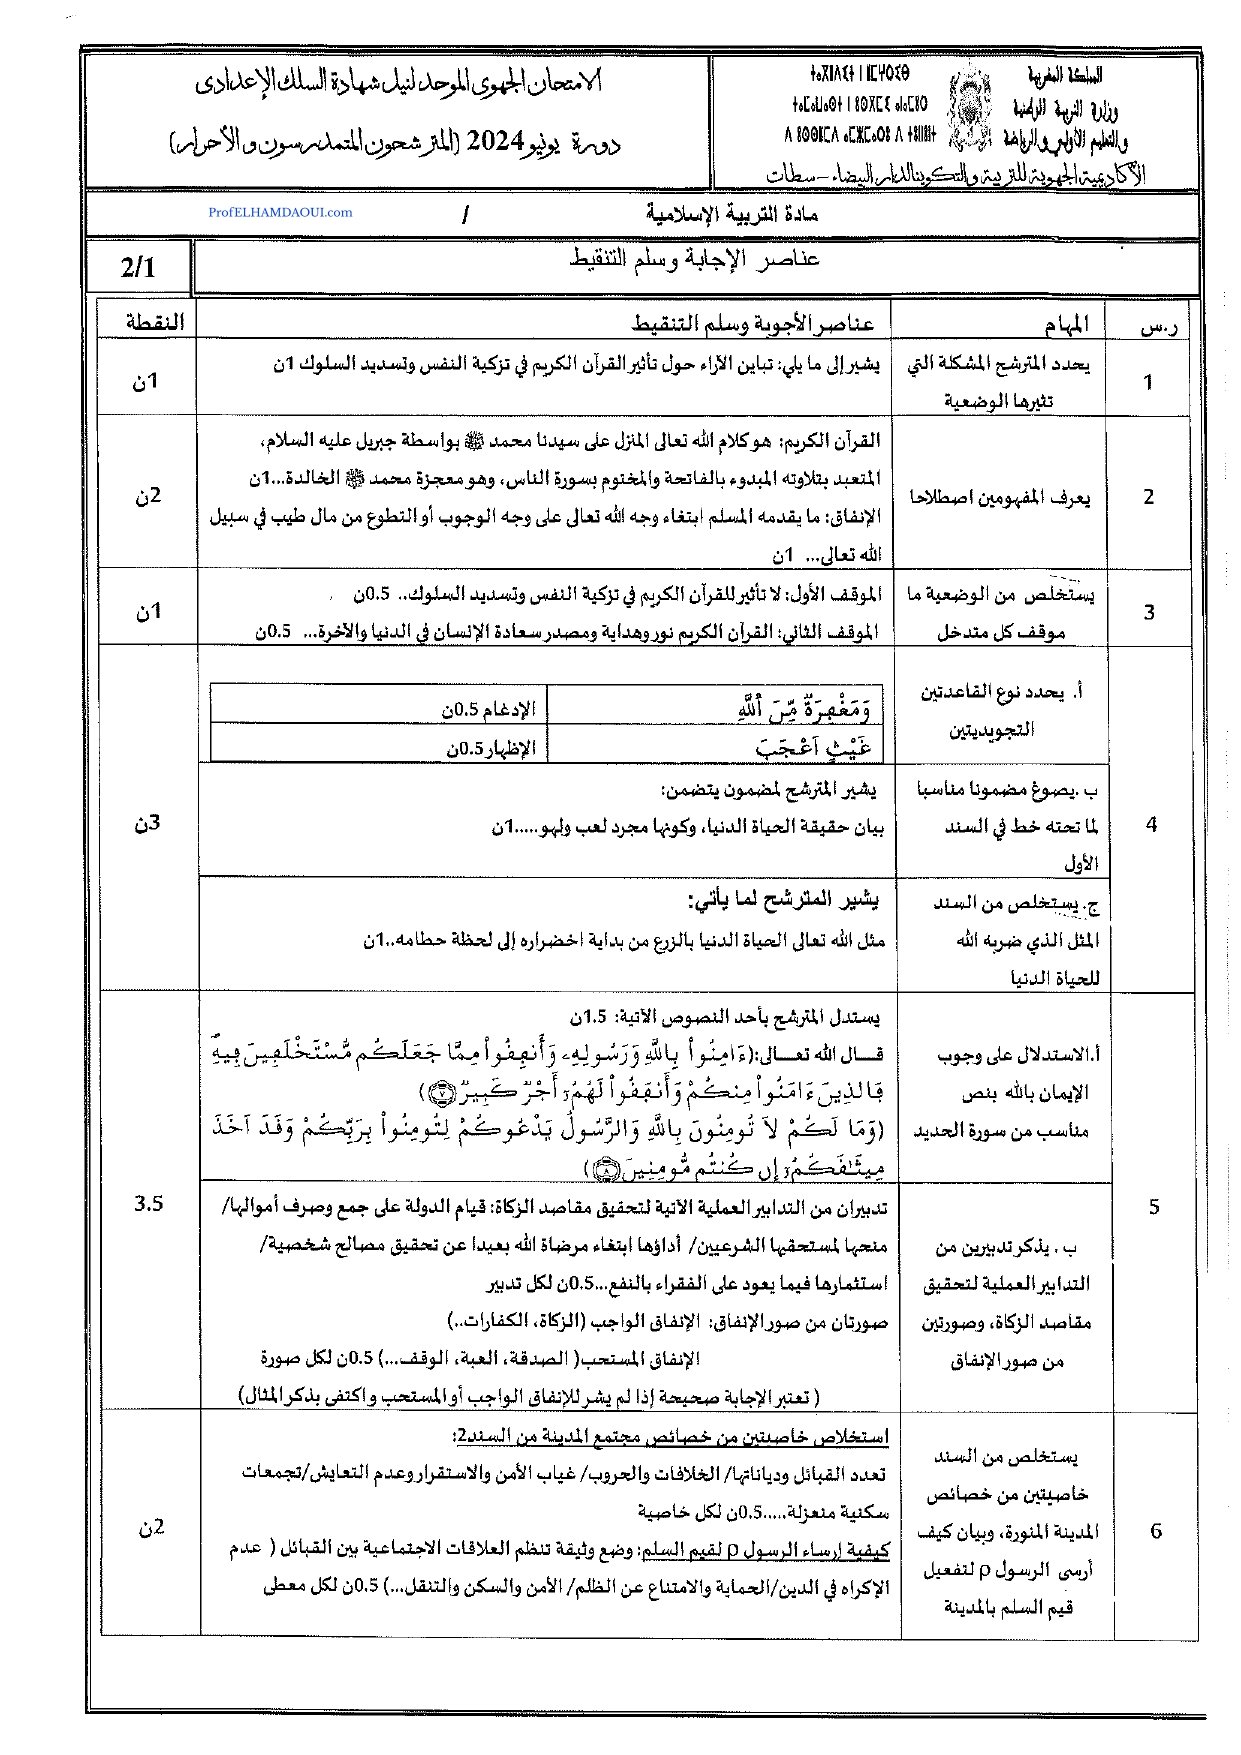 المملكة المغربية
وزارة التربية الوطنية
والتعليم الأولي والرياضة
الأكاديمية الجهوية للتربية والتكوين الدار البيضاء – سطات
الامتحان الجهوي الموحد لنيل شهادة السلك الإعدادي
دورة يونيو 2024 (المترشحون المتمدرسون والأحرار)
مادة التربية الإسلامية
/
ProfELHAMDAOUI.com
عناصر الإجابة وسلم التنقيط
2/1
ر.س
المهام
عناصر الأجوبة وسلم التنقيط
النقطة
1
يحدد المترشح المشكلة التي
تثيرها الوضعية
يشير إلى ما يلي: تباين الآراء حول تأثير القرآن الكريم في تزكية النفس وتسديد السلوك 1ن
1ن
2
يعرف المفهومين اصطلاحا
القرآن الكريم: هو كلام الله تعالى المنزل على سيدنا محمد ﷺ بواسطة جبريل عليه السلام،
المتعبد بتلاوته المبدوء بالفاتحة والمختوم بسورة الناس، وهو معجزة محمد ﷺ الخالدة...1ن
الإنفاق: ما يقدمه المسلم ابتغاء وجه الله تعالى على وجه الوجوب أو التطوع من مال طيب في سبيل
الله تعالى... 1ن
2ن
3
يستخلص من الوضعية ما
موقف كل متدخل
الموقف الأول: لا تأثير للقرآن الكريم في تزكية النفس وتسديد السلوك.. 0.5ن
الموقف الثاني: القرآن الكريم نور وهداية ومصدر سعادة الإنسان في الدنيا والآخرة... 0.5ن
1ن
4
أ. يحدد نوع القاعدتين
التجويديتين
وَمَغْفِرَةٌ مِّنَ اَللَّهِ
الإدغام 0.5ن
غَيْثٍ اَعْجَبَ
الإظهار 0.5ن
ب .يصوغ مضمونا مناسبا
لما تحته خط في السند
الأول
يشير المترشح لمضمون يتضمن:
بيان حقيقة الحياة الدنيا، وكونها مجرد لعب ولهو.....1ن
ج. يستخلص من السند
المثل الذي ضربه الله
للحياة الدنيا
يشير المترشح لما يأتي:
مثل الله تعالى الحياة الدنيا بالزرع من بداية اخضراره إلى لحظة حطامه..1ن
3ن
5
أ.الاستدلال على وجوب
الإيمان بالله بنص
مناسب من سورة الحديد
يستدل المترشح بأحد النصوص الآتية: 1.5ن
قــال الله تعــالى:(ءَامِنُواْ بِاللَّهِ وَرَسُولِهِۦ وَأَنفِقُواْ مِمَّا جَعَلَكُم مُّسْتَخْلَفِينَ فِيهِ
فَالذِينَ ءَامَنُواْ مِنكُمْ وَأَنفَقُواْ لَهُمُۥٓ أَجْرٌ كَبِيرٌ ۝٧)
(وَمَا لَكُمْ لَا تُومِنُونَ بِاللَّهِ وَالرَّسُولُ يَدْعُوكُمْ لِتُومِنُواْ بِرَبِّكُمْ وَقَدَ اَخَذَ
مِيثَٰقَكُمُۥٓ إِن كُنتُم مُّومِنِينَ ۝٨)
ب. يذكر تدبيرين من
التدابير العملية لتحقيق
مقاصد الزكاة، وصورتين
من صور الإنفاق
تدبيران من التدابير العملية الآتية لتحقيق مقاصد الزكاة: قيام الدولة على جمع وصرف أموالها/
منحها لمستحقيها الشرعيين/ أداؤها ابتغاء مرضاة الله بعيدا عن تحقيق مصالح شخصية/
استثمارها فيما يعود على الفقراء بالنفع...0.5ن لكل تدبير
صورتان من صور الإنفاق: الإنفاق الواجب (الزكاة، الكفارات..)
الإنفاق المستحب( الصدقة، الهبة، الوقف...) 0.5ن لكل صورة
( تعتبر الإجابة صحيحة إذا لم يشر للإنفاق الواجب أو المستحب واكتفى بذكر المثال)
3.5
6
يستخلص من السند
خاصيتين من خصائص
المدينة المنورة، وبيان كيف
أرسى الرسول ρ لتفعيل
قيم السلم بالمدينة
استخلاص خاصيتين من خصائص مجتمع المدينة من السند2:
تعدد القبائل ودياناتها/ الخلافات والحروب/ غياب الأمن والاستقرار وعدم التعايش/تجمعات
سكنية منعزلة.....0.5ن لكل خاصية
كيفية إرساء الرسول ρ لقيم السلم: وضع وثيقة تنظم العلاقات الاجتماعية بين القبائل ( عدم
الإكراه في الدين/الحماية والامتناع عن الظلم/ الأمن والسكن والتنقل...) 0.5ن لكل معطى
2ن